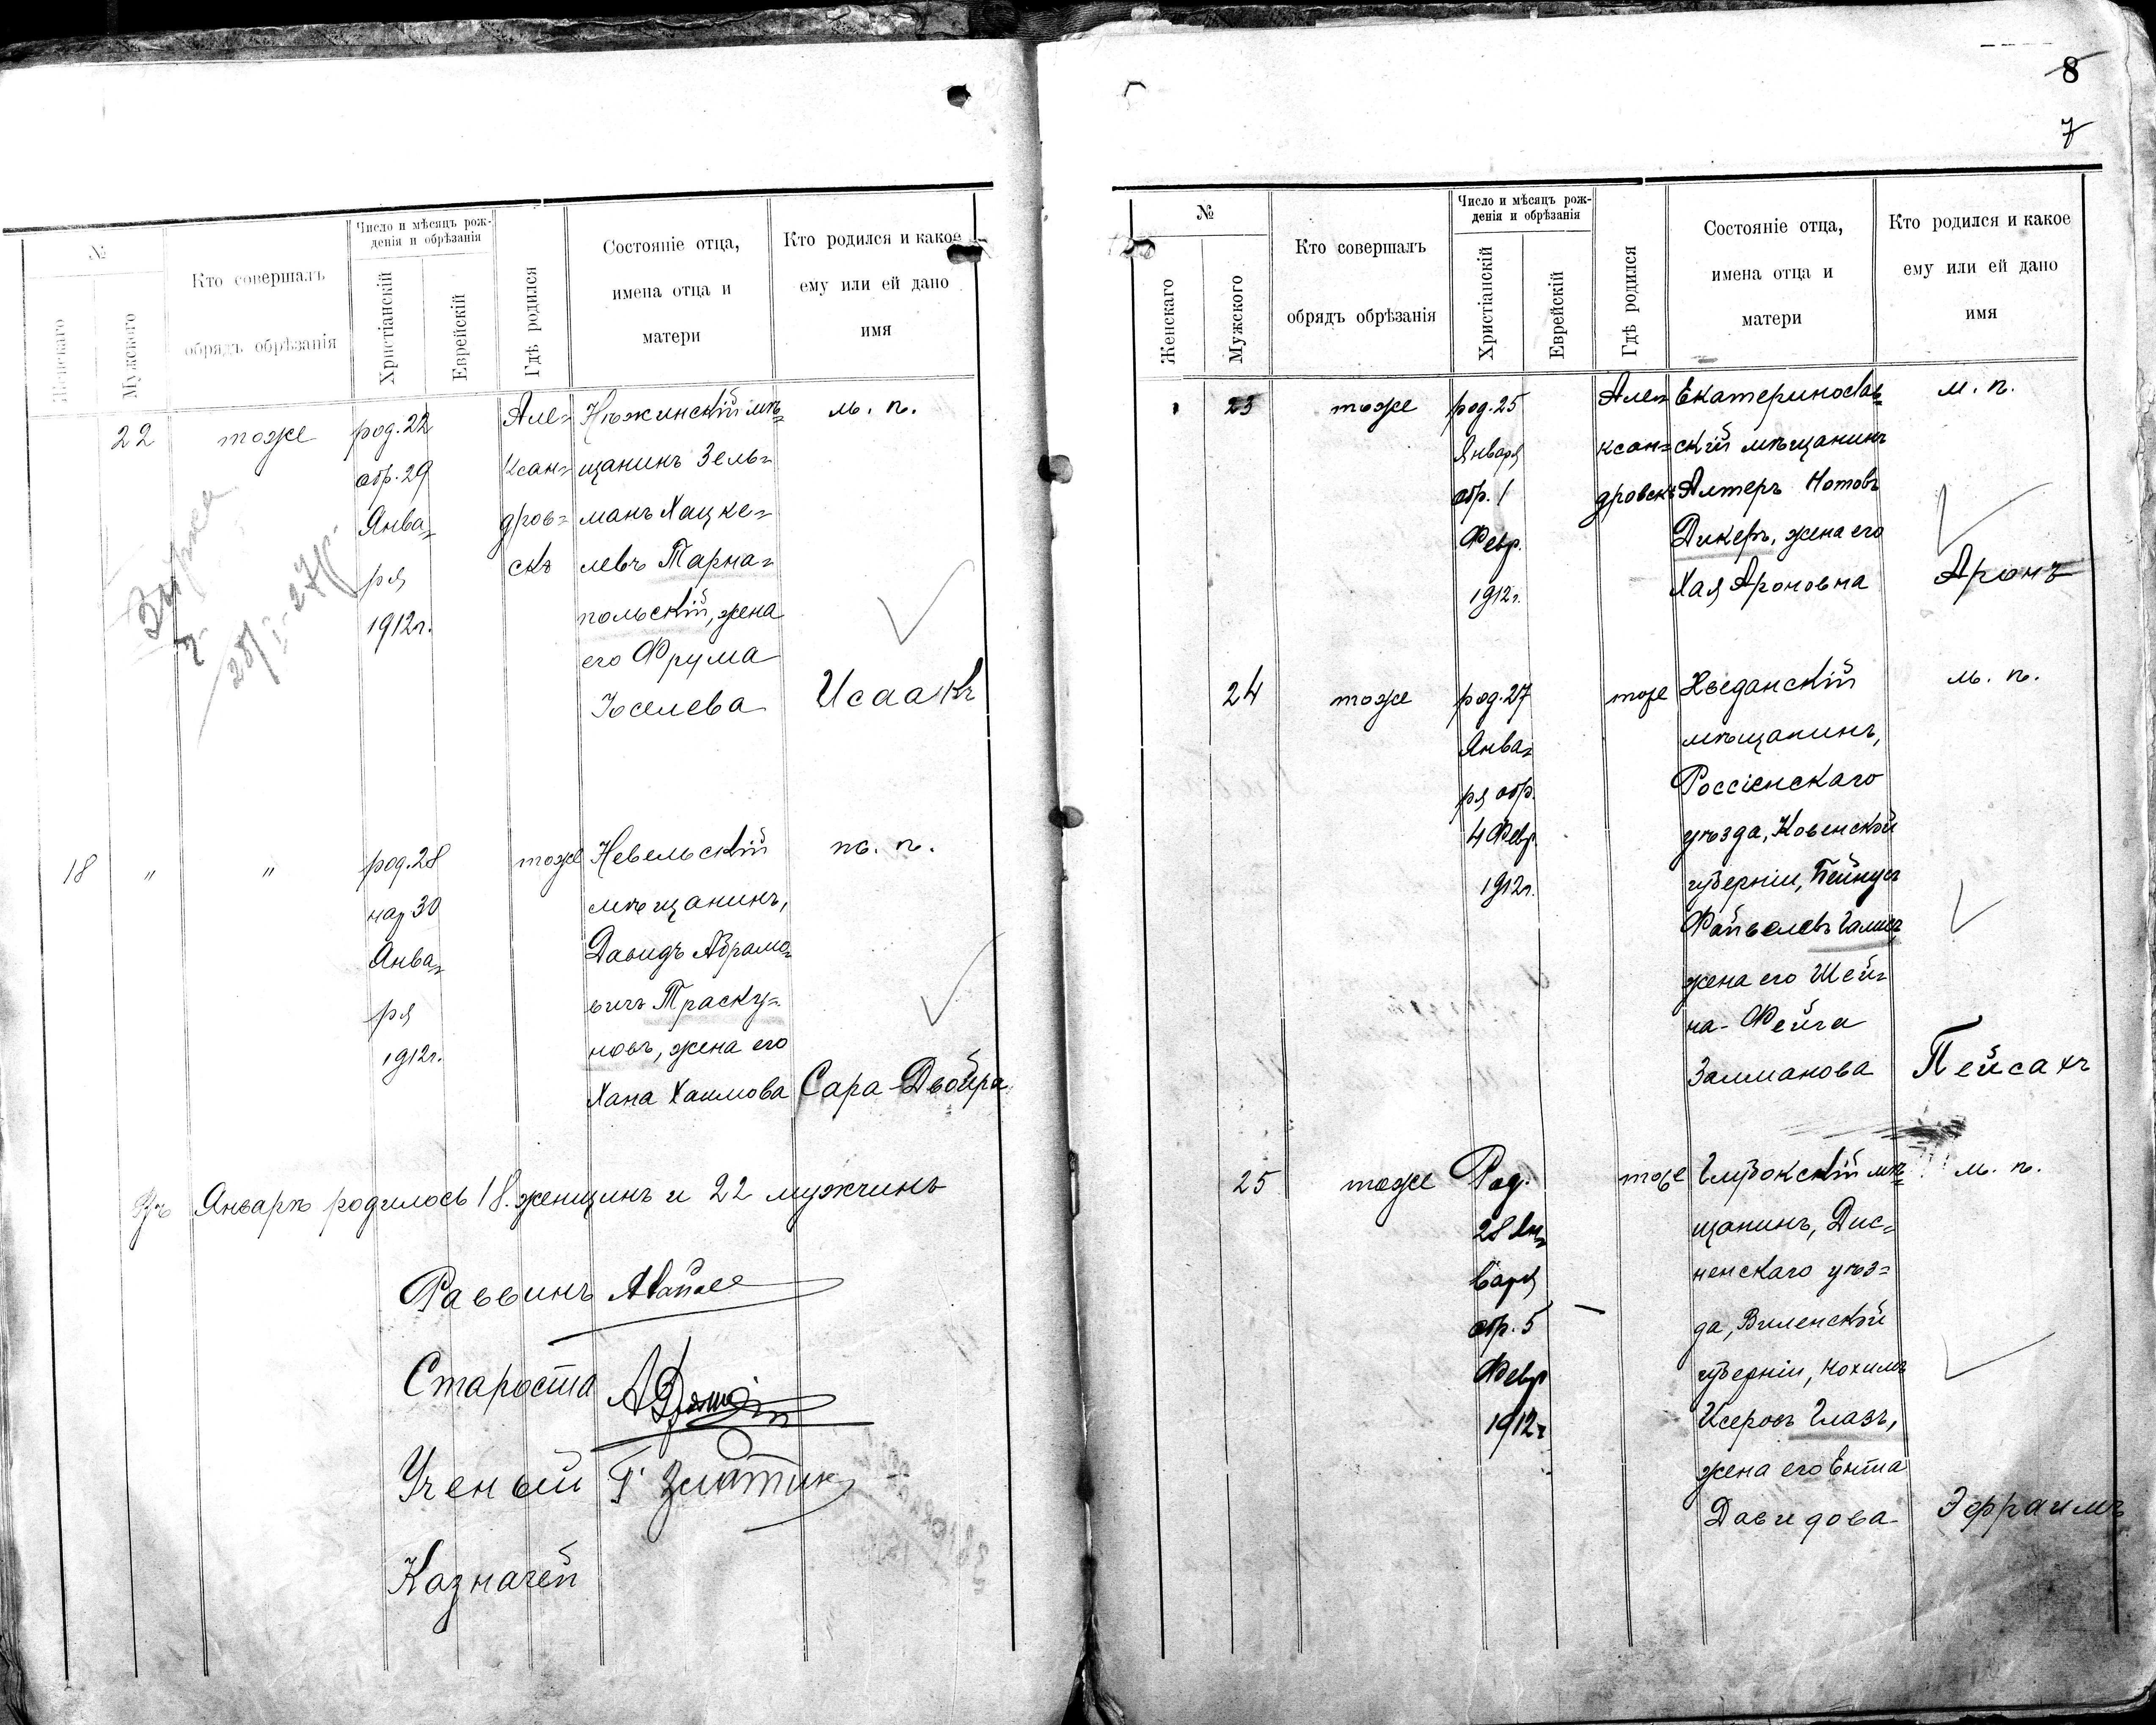 №
Женскаго
Мужского
Кто совершалъ
обрядъ обрѣзанія
Число и мѣсяцъ рож-
денія и обрѣзанія
Христіанскій
Еврейскій
Гдѣ родился
Состояніе отца,
имена отца и
матери
Кто родился и какое
ему или ей дано
имя
22
тоже
род. 22
обр. 29
Янва=
ря
1912 г.
Але=
ксан=
дров=
скъ
Нѣжинскій мѣ=
щанинъ Зель=
манъ Хацке=
левъ Тарна=
польскій, жена
его Фрума
Іоселева
м. п.
Исаакъ
18
"
"
род. 28
нар 30
Янва=
ря
1912 г.
тоже
Невельскій
мѣщанинъ,
Давидъ Абрамо=
вичъ Траску=
новъ, жена его
Хана Хаимова
ж. п.
Сара-Двойра
Въ Январѣ родилось 18 женщинъ и 22 мужчинъ
Раввинъ
Староста
Ученый
Казначей
8
7
№
Женскаго
Мужского
Кто совершалъ
обрядъ обрѣзанія
Число и мѣсяцъ рож-
денія и обрѣзанія
Христіанскій
Еврейскій
Гдѣ родился
Состояніе отца,
имена отца и
матери
Кто родился и какое
ему или ей дано
имя
23
тоже
род. 25
Января
обр. 1
Февр.
1912 г.
Алек
ксан=
дровскъ
Екатеринослав=
скій мѣщанинъ
Алтеръ Нотовъ
Дикеръ, жена его
Хая Ароновна
м. п.
Аронъ
24
тоже
род. 27
Янва=
ря обр.
4 Февр.
1912 г.
тоже
Кейданскій
мѣщанинъ,
Россіенскаго
уѣзда, Ковенской
губерніи, Бейнусъ
Файвелевъ
жена его Шей=
на-Фейга
Залманова
м. п.
Пейсахъ
25
тоже
Род.
28 Ян=
варя
обр. 5
Февр
1912 г
тоже
Глубокскій мѣ=
щанинъ, Дис=
ненскаго уѣз=
да, Виленской
губерніи, Нохимъ
Исеровъ Глазъ,
жена его Ента
Давидова
м. п.
Эфраимъ